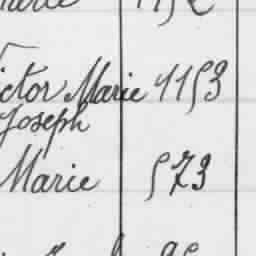 ictor Marie 1153
Joseph
Marie 573